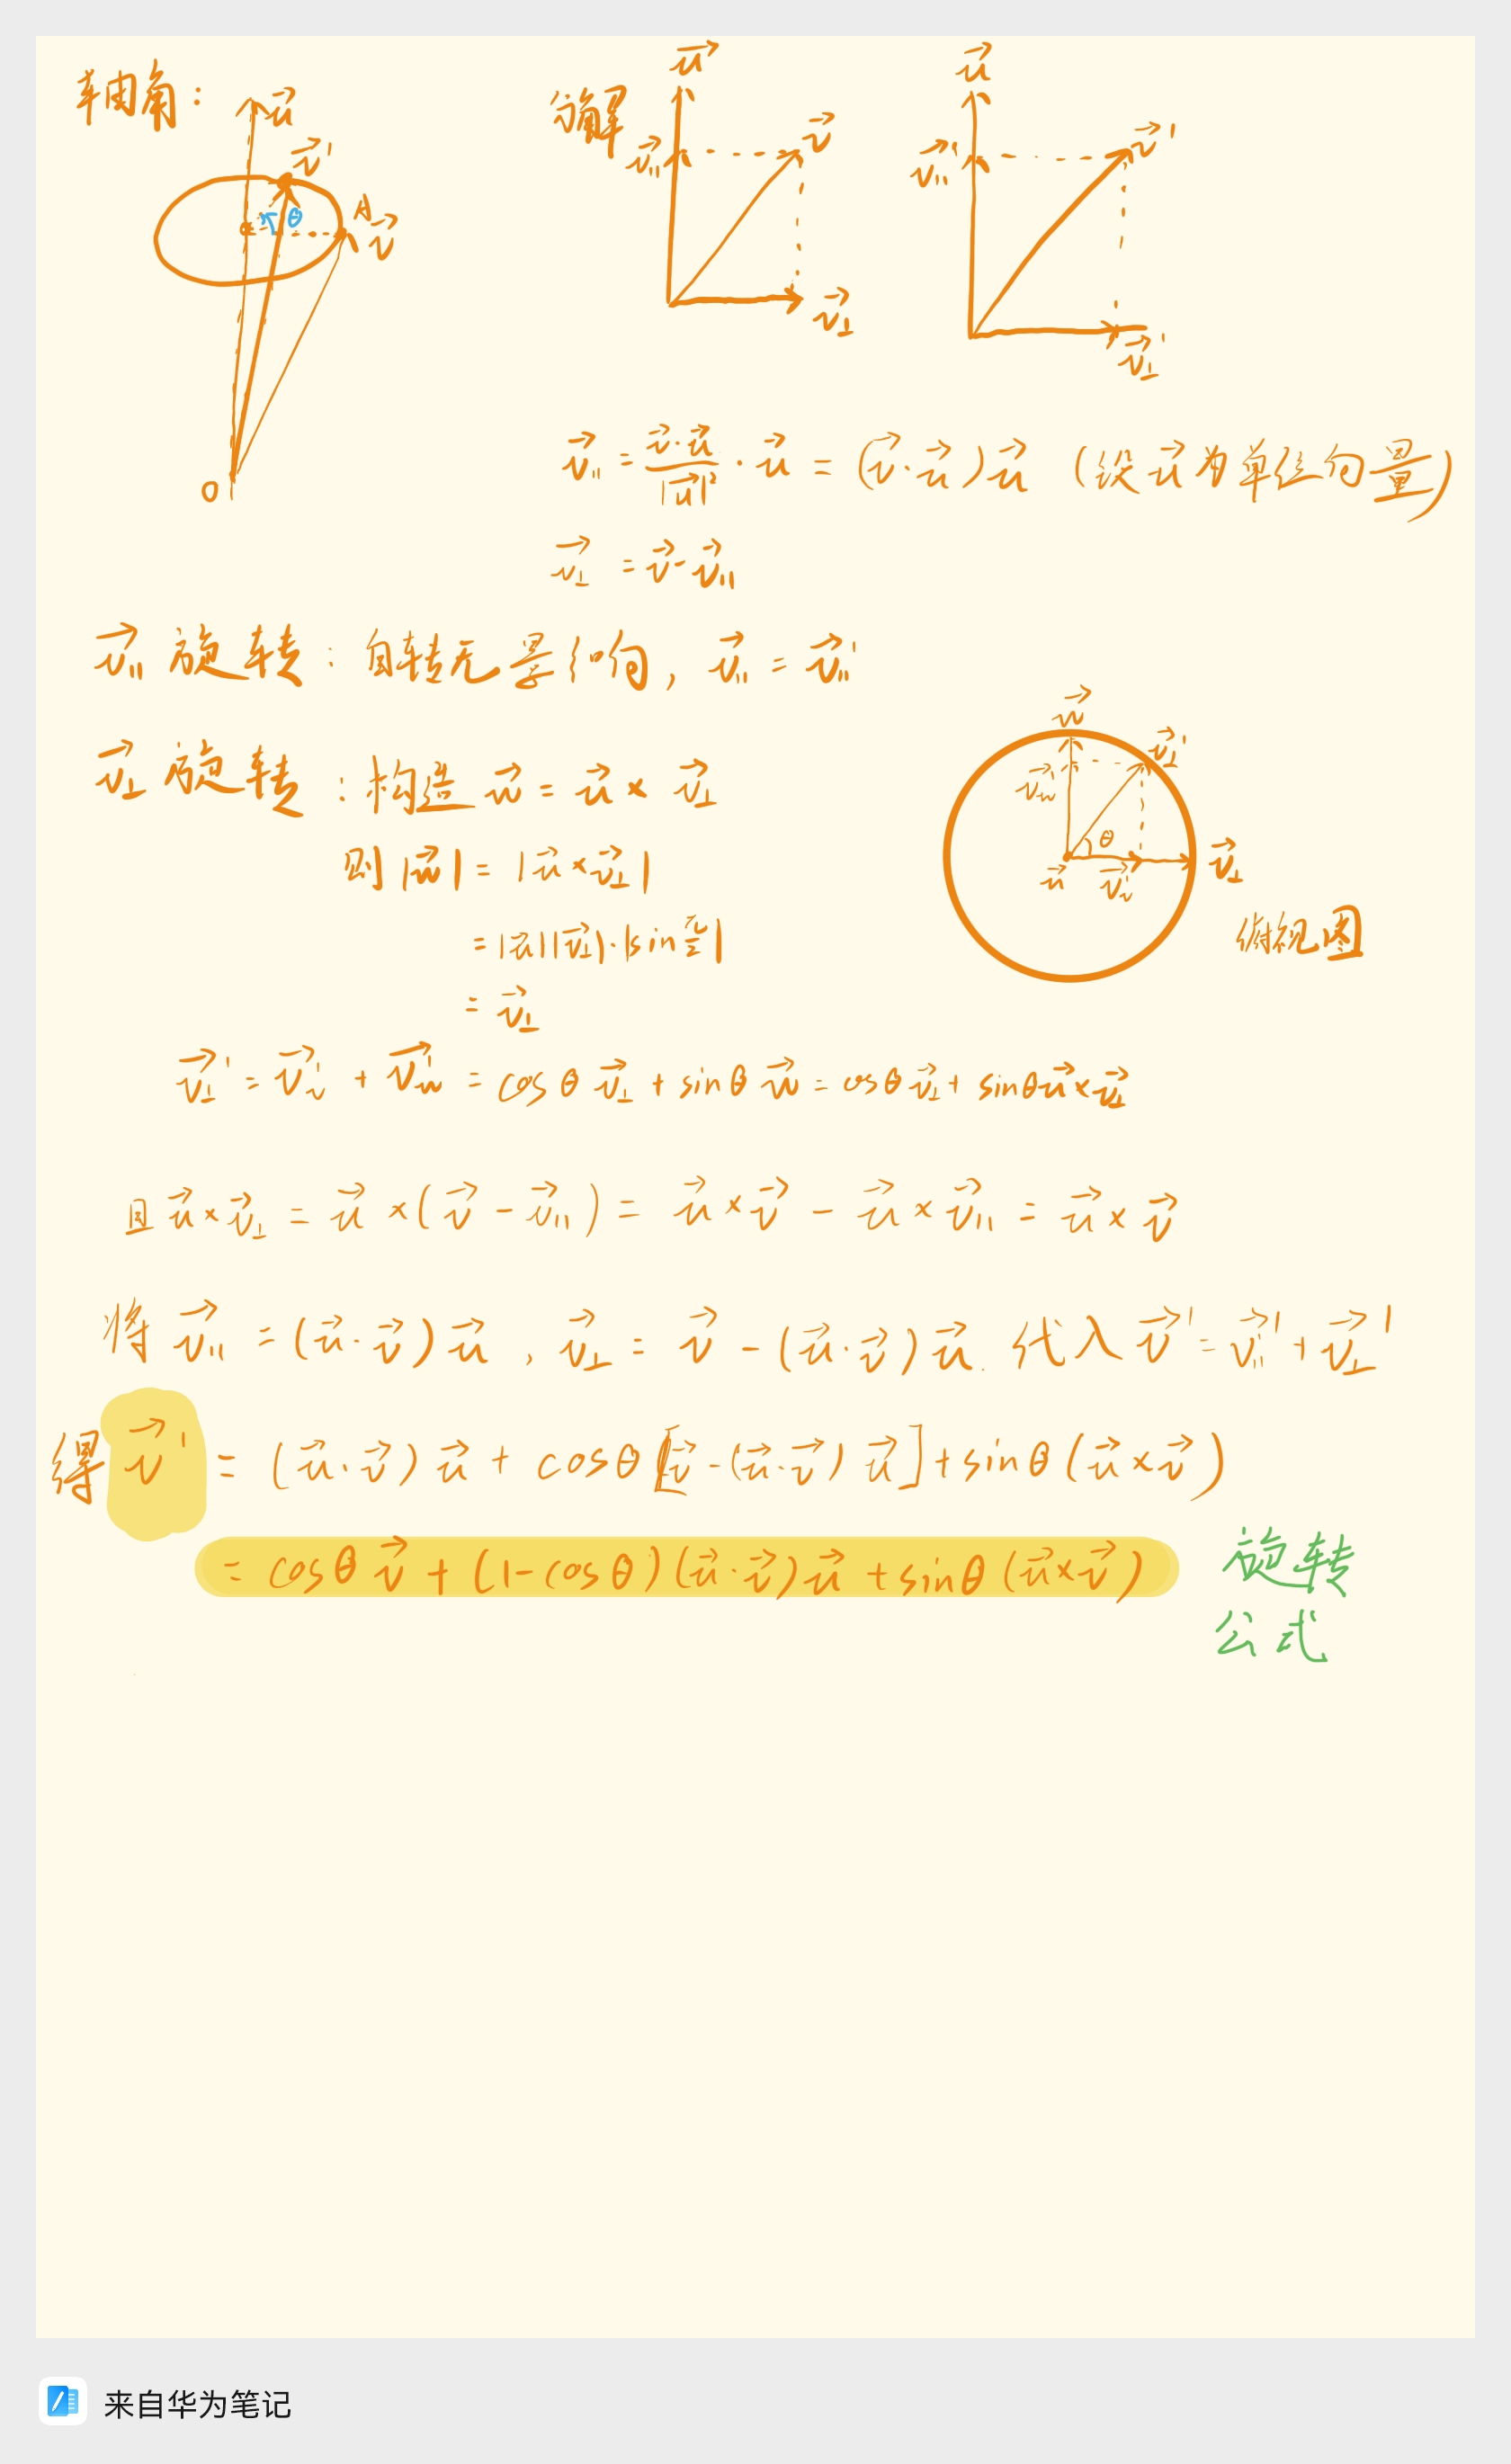 轴角:
u⃗
v⃗'
θ
A
v⃗
O
分解
u⃗
v⃗∥
v⃗
v⃗⊥
u⃗
v⃗∥'
v⃗'
v⃗⊥'
v⃗∥ = (v⃗·u⃗)/|u⃗|² · u⃗ = (v⃗·u⃗)u⃗ (设u⃗为单位向量)
v⃗⊥ = v⃗-v⃗∥
v⃗∥ 旋转: 自转无差别, v⃗∥ = v⃗∥'
v⃗⊥ 旋转: 构造 w⃗ = u⃗ × v⃗⊥
则 |w⃗| = |u⃗×v⃗⊥|
= |u⃗||v⃗⊥|·|sin π/2|
= v⃗⊥
w⃗
v⃗⊥'
v⃗w'
θ
u⃗
v⃗v'
v⃗⊥
俯视图
v⃗⊥' = v⃗v' + v⃗w' = cosθ v⃗⊥ + sinθ w⃗ = cosθ v⃗⊥ + sinθ u⃗×v⃗⊥
且 u⃗×v⃗⊥ = u⃗ ×(v⃗ - v⃗∥) = u⃗×v⃗ - u⃗×v⃗∥ = u⃗×v⃗
将 v⃗∥ = (u⃗·v⃗)u⃗, v⃗⊥ = v⃗ - (u⃗·v⃗)u⃗. 代入 v⃗' = v⃗∥' + v⃗⊥'
得 v⃗' = (u⃗·v⃗)u⃗ + cosθ[v⃗-(u⃗·v⃗)u⃗] + sinθ(u⃗×v⃗)
= cosθ v⃗ + (1-cosθ)(u⃗·v⃗)u⃗ + sinθ(u⃗×v⃗)
旋转
公式
来自华为笔记